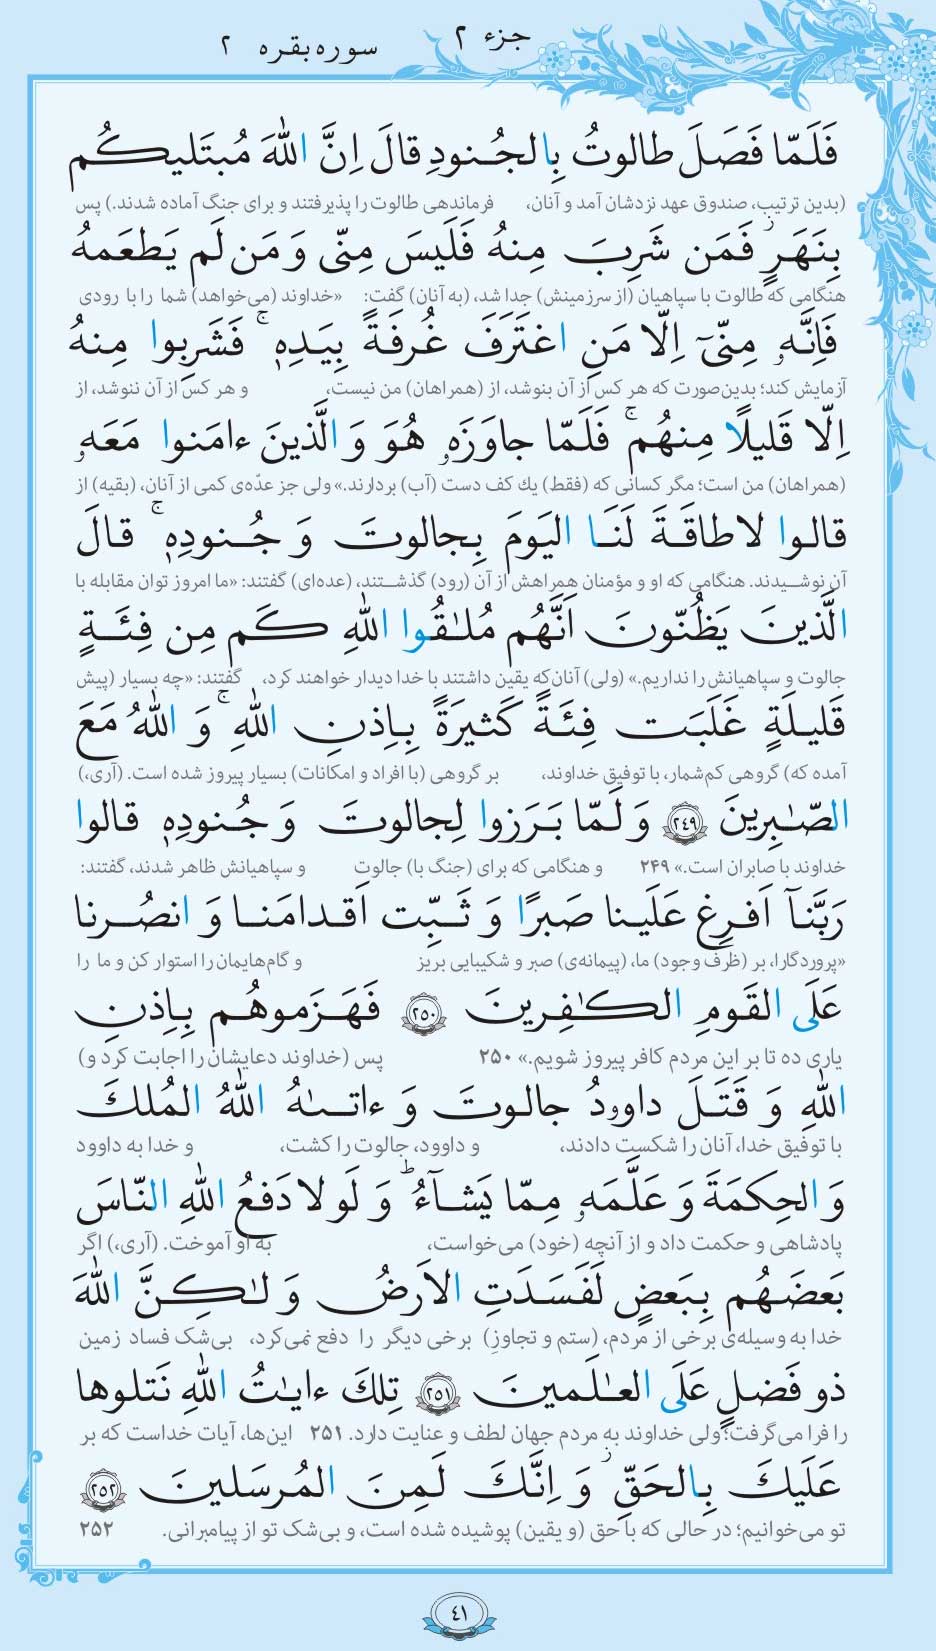 جزء ۲
سوره بقره ۲
فَلَمّا فَصَلَ طالوتُ بِالجُنودِ قالَ اِنَّ اللّٰهَ مُبتَليكُم
(بدین ترتیب، صندوق عهد نزدشان آمد و آنان، فرماندهی طالوت را پذیرفتند و برای جنگ آماده شدند.) پس
بِنَهَرٍ ۚ فَمَن شَرِبَ مِنهُ فَلَيسَ مِنّى وَ مَن لَم يَطعَمهُ
هنگامی که طالوت با سپاهیان (از سرزمینش) جدا شد، (به آنان) گفت: «خداوند (می‌خواهد) شما را با رودی
فَاِنَّهٗ مِنّىٓ اِلّا مَنِ اغتَرَفَ غُرفَةً بِيَدِهٖ ۚ فَشَرِبوا مِنهُ
آزمایش کند؛ بدین‌صورت که هر کس از آن بنوشد، از (همراهان) من نیست، و هر کس از آن ننوشد، از
اِلّا قَليلًا مِنهُم ۚ فَلَمّا جاوَزَهٗ هُوَ وَ الَّذينَ ءامَنوا مَعَهٗ
(همراهان) من است؛ مگر کسانی که (فقط) یك کف دست (آب) بردارند.» ولی جز عدّه‌ی کمی از آنان، (بقیه) از
قالوا لا طاقَةَ لَنَا اليَومَ بِجالوتَ وَ جُنودِهٖ ۚ قالَ
آن نوشیدند. هنگامی که او و مؤمنان همراهش از آن (رود) گذشتند، (عده‌ای) گفتند: «ما امروز توان مقابله با
الَّذينَ يَظُنّونَ اَنَّهُم مُلٰقُوا اللّٰهِ كَم مِن فِئَةٍ
جالوت و سپاهیانش را نداریم.» (ولی) آنان‌که یقین داشتند با خدا دیدار خواهند کرد، گفتند: «چه بسیار (پیش
قَليلَةٍ غَلَبَت فِئَةً كَثيرَةً بِاِذنِ اللّٰهِ ۚ وَ اللّٰهُ مَعَ
آمده که) گروهی کم‌شمار، با توفیق خداوند، بر گروهی (با افراد و امکانات) بسیار پیروز شده است. (آری،)
الصّٰبِرينَ ۲۴۹ وَ لَمّا بَرَزوا لِجالوتَ وَ جُنودِهٖ قالوا
خداوند با صابران است.» ۲۴۹ و هنگامی که برای (جنگ با) جالوت و سپاهیانش ظاهر شدند، گفتند:
رَبَّنآ اَفرِغ عَلَينا صَبرًا وَ ثَبِّت اَقدامَنا وَ انصُرنا
«پروردگارا، بر (ظرف وجود) ما، (پیمانه‌ی) صبر و شکیبایی بریز و گام‌هایمان را استوار کن و ما را
عَلَى القَومِ الكٰفِرينَ ۲۵۰ فَهَزَموهُم بِاِذنِ
یاری ده تا بر این مردم کافر پیروز شویم.» ۲۵۰ پس (خداوند دعایشان را اجابت کرد و)
اللّٰهِ وَ قَتَلَ داوٗدُ جالوتَ وَ ءاتىٰهُ اللّٰهُ المُلكَ
با توفیق خدا، آنان را شکست دادند، و داوود، جالوت را کشت، و خدا به داوود
وَ الحِكمَةَ وَ عَلَّمَهٗ مِمّا يَشآءُ ۗ وَ لَولا دَفعُ اللّٰهِ النّاسَ
پادشاهی و حکمت داد و از آنچه (خود) می‌خواست، به او آموخت. (آری،) اگر
بَعضَهُم بِبَعضٍ لَفَسَدَتِ الاَرضُ وَ لٰكِنَّ اللّٰهَ
خدا به وسیله‌ی برخی از مردم، (ستم و تجاوزِ) برخی دیگر را دفع نمی‌کرد، بی‌شک فساد زمین
ذو فَضلٍ عَلَى العٰلَمينَ ۲۵۱ تِلكَ ءايٰتُ اللّٰهِ نَتلوها
را فرا می‌گرفت؛ ولی خداوند به مردم جهان لطف و عنایت دارد. ۲۵۱ این‌ها، آیات خداست که بر
عَلَيكَ بِالحَقِّ ۚ وَ اِنَّكَ لَمِنَ المُرسَلينَ ۲۵۲
تو می‌خوانیم؛ در حالی که با حق (و یقین) پوشیده شده است، و بی‌شک تو از پیامبرانی. ۲۵۲
۴۱